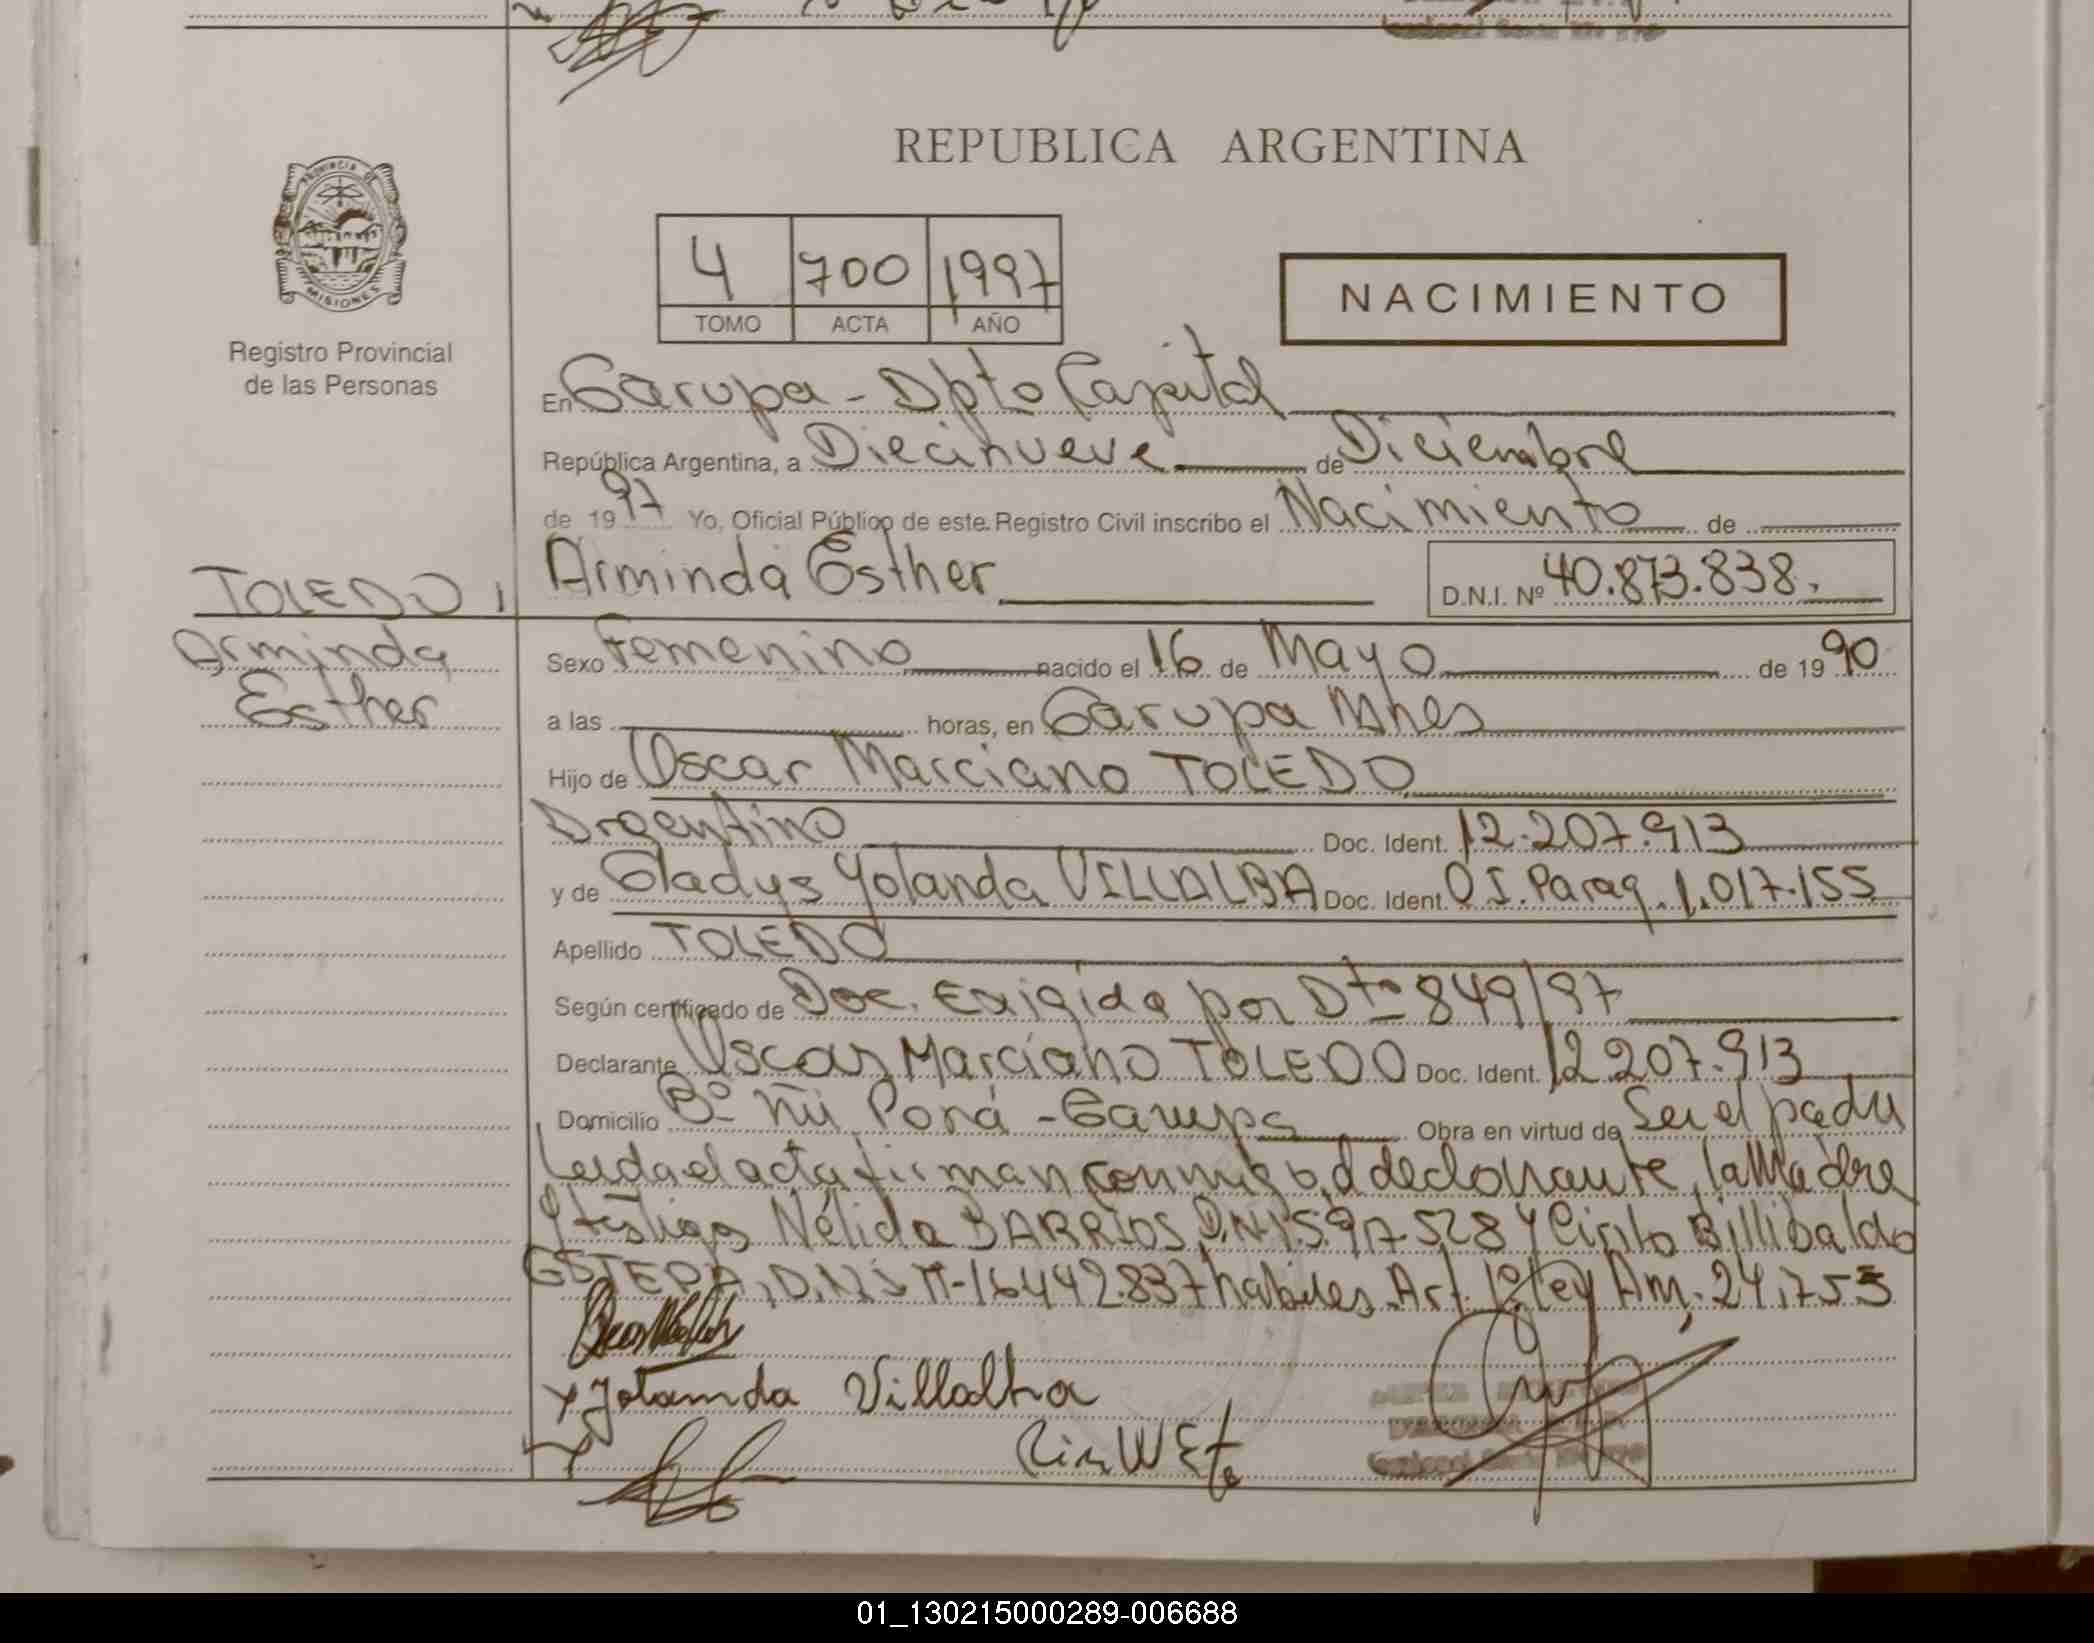 REPUBLICA ARGENTINA
PROVINCIA DE
MISIONES
Registro Provincial
de las Personas
4 700 1997
TOMO ACTA AÑO
NACIMIENTO
En Garupa - Dpto Capital
República Argentina, a Diecinueve de Diciembre
de 1997 Yo, Oficial Público de este Registro Civil inscribo el Nacimiento de
TOLEDO, Arminda Esther D.N.I. Nº 40.873.838.
Arminda
Esther
Sexo Femenino nacido el 16 de Mayo de 1990
a las horas, en Garupa Mnes
Hijo de Oscar Marciano TOLEDO
Argentino Doc. Ident. 12.207.913
y de Gladys Yolanda VILLALBA Doc. Ident. C I. Parag. 1.017.155
Apellido TOLEDO
Según certificado de Doc. Exigida por Dto 849/97
Declarante Oscar Marciano TOLEDO Doc. Ident. 12.207.913
Domicilio Bº Ñu Porá - Garupa Obra en virtud de Ser el padre
Leida el acta firman conmigo, el declarante, la Madre
y testigos Nélida BARRIOS, D.N.I. 5.917.528 y Cirilo Billibaldo
D.N.I. M-16.442.837 habiles. Art. 1º Ley Am. 24.755
Yolanda Villalba
01_130215000289-006688